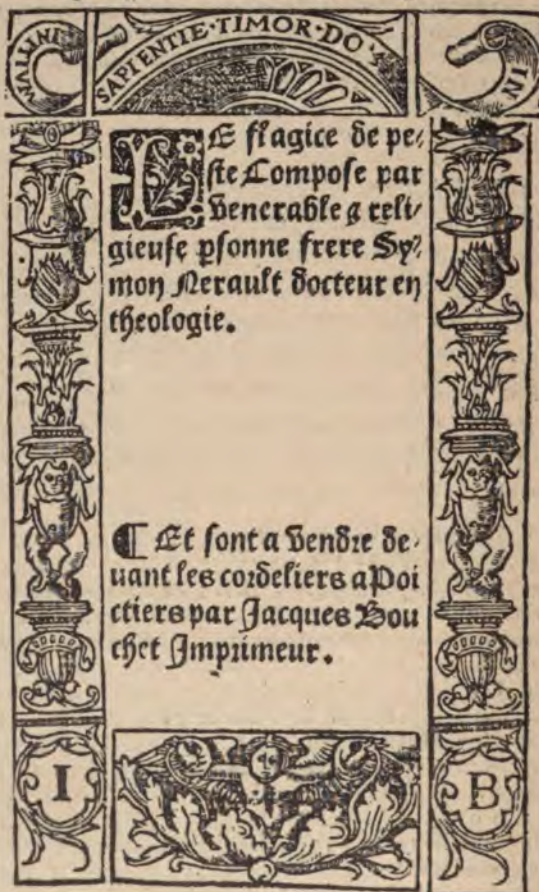 MALLINI
SAPIENTIE·TIMOR·DO
IN
LE flagice de pe/
ste Compose par
venerable & reli/
gieuse psonne frere Sy/
mon Nerault docteur en
theologie.
¶ Et sont a vendre de/
uant les cordeliers a Poi
ctiers par Jacques Bou
chet Imprimeur.
I
B